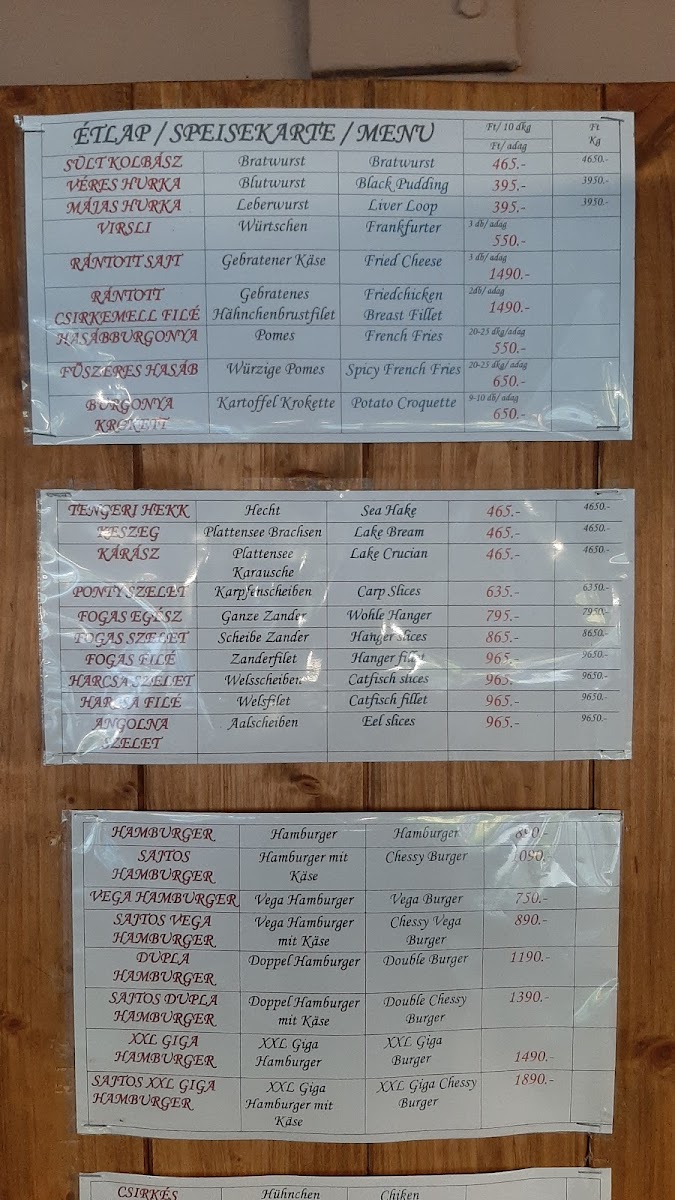 ÉTLAP / SPEISEKARTE / MENU Ft/ 10 dkg Ft
Ft/ adag Kg
SÜLT KOLBÁSZ Bratwurst Bratwurst 465.- 4650.-
VÉRES HURKA Blutwurst Black Pudding 395.- 3950.-
MÁJAS HURKA Leberwurst Liver Loop 395.- 3950.-
VIRSLI Würtschen Frankfurter 3 db/ adag
550.-
RÁNTOTT SAJT Gebratener Käse Fried Cheese 3 db/ adag
1490.-
RÁNTOTT Gebratenes Friedchicken 2db/ adag
CSIRKEMELL FILÉ Hähnchenbrustfilet Breast Fillet 1490.-
HASÁBBURGONYA Pomes French Fries 20-25 dkg/adag
550.-
FŰSZERES HASÁB Würzige Pomes Spicy French Fries 20-25 dkg/ adag
650.-
BURGONYA Kartoffel Krokette Potato Croquette 9-10 db/ adag
KROKETT 650.-
TENGERI HEKK Hecht Sea Hake 465.- 4650.-
KESZEG Plattensee Brachsen Lake Bream 465.- 4650.-
KÁRÁSZ Plattensee Lake Crucian 465.- 4650.-
Karausche
PONTY SZELET Karpfenscheiben Carp Slices 635.- 6350.-
FOGAS EGÉSZ Ganze Zander Wohle Hanger 795.- 7950.-
FOGAS SZELET Scheibe Zander Hanger slices 865.- 8650.-
FOGAS FILÉ Zanderfilet Hanger fillet 965.- 9650.-
HARCSA SZELET Welsscheiben Catfisch slices 965.- 9650.-
HARCSA FILÉ Welsfilet Catfisch fillet 965.- 9650.-
ANGOLNA Aalscheiben Eel slices 965.- 9650.-
SZELET
HAMBURGER Hamburger Hamburger 890.-
SAJTOS Hamburger mit Chessy Burger 1090.-
HAMBURGER Käse
VEGA HAMBURGER Vega Hamburger Vega Burger 750.-
SAJTOS VEGA Vega Hamburger Chessy Vega 890.-
HAMBURGER mit Käse Burger
DUPLA Doppel Hamburger Double Burger 1190.-
HAMBURGER
SAJTOS DUPLA Doppel Hamburger Double Chessy 1390.-
HAMBURGER mit Käse Burger
XXL GIGA XXL Giga XXL Giga
HAMBURGER Hamburger Burger 1490.-
SAJTOS XXL GIGA XXL Giga XXL Giga Chessy 1890.-
HAMBURGER Hamburger mit Burger
Käse
CSIRKÉS Hühnchen Chiken